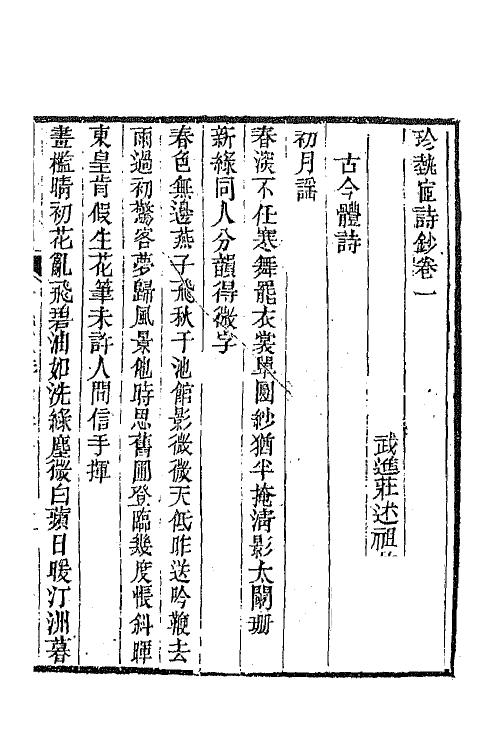 珍埶宧詩鈔卷一
武進莊述祖
古今體詩
初月謠
春淡不任寒舞罷衣裳單團紗猶半掩淸影太闌珊
新綠同人分韻得微字
春色無邊燕子飛秋千池館影微微天低昨送吟鞭去
雨過初驚客夢歸風景他時思舊圃登臨幾度悵斜暉
東皇肯假生花筆未許人間信手揮
畫檻晴初花亂飛碧油如洗綠塵微白蘋日暖汀洲暮